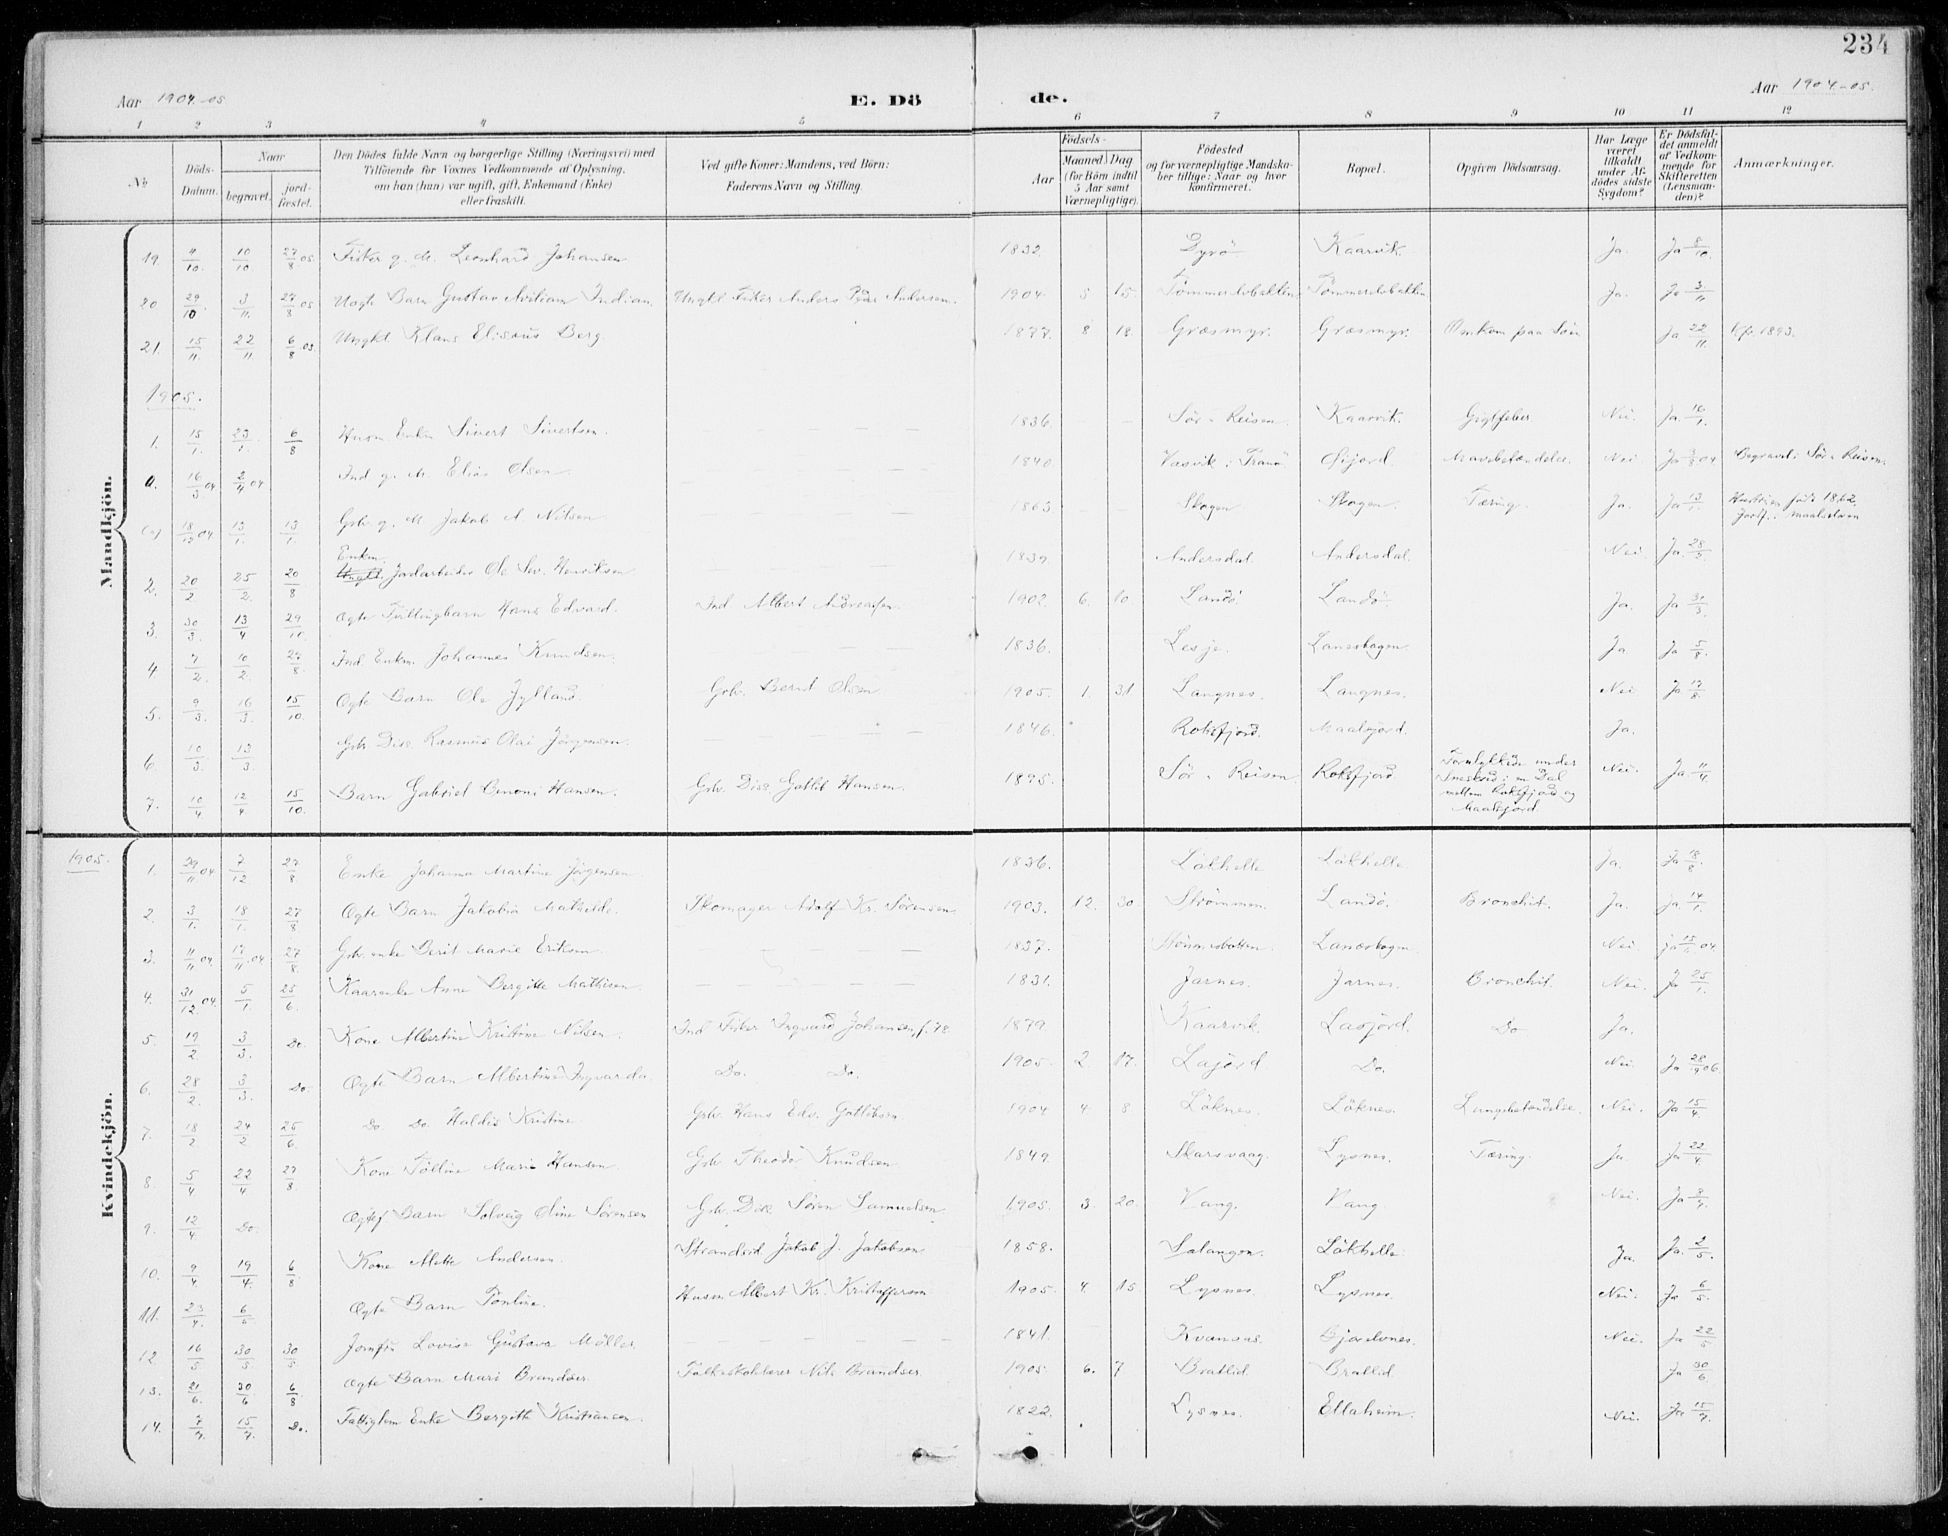 234
Aar 1904-05
E. Döde.
Aar 1904-05.
1 2 3 4 5 6 7 8 9 10 11 12
No
Döds-Datum.
Naar
begravet.
jord-fæstet.
Den Dödes fulde Navn og borgerlige Stilling (Næringsvei) med
Tilföiende for Voxnes Vedkommende af Oplysning,
om han (hun) var ugift, gift, Enkemand (Enke)
eller fraskilt.
Ved gifte Koner: Mandens, ved Børn:
Faderens Navn og Stilling.
Födsels-
Aar
Maaned Dag
(for Börn indtil
5 Aar samt
Værnepligtige).
Födested
og for værnepligtige Mandska-
ber tillige: Naar og hvor
konfirmeret.
Bopæl.
Opgiven Dödsaarsag.
Har Læge
været
tilkaldt
under Af-
dödes sidste
Sygdom?
Er Dödsfal-
det anmeldt
af Vedkom-
mende for
Skifteretten
(Lensman-
den)?
Anmærkninger.
Mandkjön.
19 4/10. 10/10 27/8 05 Fisker g. M. Leonhard Johansen 1832. Dyrö Kaarvik. Ja. Ja 8/10.
20 29/10. 3/11. 27/8 05 Uægte Barn Gustav Indian. Ungkl Fisker Anders Andersen. 1904. 5 15. Ja. Ja 3/11
21. 15/11. 22/11. 6/8 05. Ungkl Klaus Elisæus Berg. 1877. 8 18. Græsmyr. Græsmyr. Omkom paa Söen Ja 22/11. Kfr. 1893.
1905.
1. 15/1. 23/1. 6/8 Husm. Enkm Sivert Sivertsen. 1836. Sör-Reisen. Kaarvik. Gigtfeber Nei. Ja 16/1.
0. 16/3 04 2/4 04. Ind g. M. Elias Olsen 1840 Vasvik i Tranö Mavebetændelse. Nei Ja 04 Begravet i Sör-Reisen.
18/12 04 13/1. 13/1. Gbr. g. M Jakob A. Nilsen 1863 Skogen Skogen. Tæring. Ja. Ja 13/1. 1862. Maalselven
2. 20/2 25/2. 20/8 Enkm. Ungkl. Jordarbeider Ole Sev. Henriksen 1839. Andersdal. Andersdal. Nei. Ja 28/5
3. 30/3. 13/4 29/10. Ægte Tvillingbarn Hans Edvard. Ind Albert Andreasen. 1902. 6. 10. Landö. Landö. Ja. Ja 31/3.
4. 7/2. 10/2. 27/8 Ind. Enkm. Johannes Knudsen. 1836. Lesje. Ja Ja 5/8.
5. 9/3. 16/3. 15/10. Ægte Barn Ole Jylland. Gbr. Bernt Olsen 1905. 1. 31 Langnes. Langnes. Nei Ja 17/8.
6. 10/3 13/3. Gbr Dise. Rasmus Olai Jörgensen. 1846. Roksfjord. Maalsjord. Ja.
7. 10/4 12/4 15/10. Barn Gabriel Hansen. Gbr. Dise Gotlib Hansen. 1895. Sör-Reisen Roksfjord Forulykkede under Sneskred i en Dal mellem Roksfjord og Maalsjord. Nei. Ja 11/4
Kvindekjön.
1905.
1. 29/11 04 7/12 27/8 Enke Johanna Martine Jörgensen. 1836. Lökhelle Lökhelle Ja. Ja 18/8
2. 3/1. 18/1. 27/8 Ægte Barn Jakobia Mathilde. Skomager Adolf Kr. Sörensen. 1903. 12. 30. Strömmen. Landö. Bronchit. Ja. Ja 14/1.
3. 11/11 04. 17/11. 04 27/8. Gbr. enke Berit Marie Eriksen. 1837. Nei. ja 04
4. 31/12. 04. 5/1 25/6. Kaarenke Anne Bergitte Mathisen. 1831. Jarnes. Jarnes. Bronchit. Nei. Ja 25/1.
5. 19/2 3/3. Do. Kone Albertine Kristine Nilsen. Ind Fisker Ingvard Johansen, f. 78. 1879. Kaarvik. Lasjord. Do Ja.
6. 28/2. 3/3. Do. Ægte Barn Albertine Ingvarda. Do. Do. 1905. 2. 17. Lajord Do. Nei. Ja 28/9 06.
7. 18/2 24/2 25/6. Do Do Haldis Kristine. Gbr. Hans Edv. Gotlibsen 1904 4. 8 Löknes. Löknes. Lungebetændelse. Nei. Ja 15/4.
8. 5/4 22/4 27/8. Kone Marie Hansen. Gbr Theodor Knudsen 1849. Skarsvaag. Lysnes. Tæring. Ja. Ja 22/4.
9. 12/4 Do. Ægtef Barn Solveig Oline Sörensen Gbr. Dise Sören Samuelsen 1905. 3. 20. Vang. Vang Nei. Ja
10. 9/4 19/4. 6/8 Kone Mette Andersen. Strandsid Jakob J. Jakobsen. 1858. Salangen. Lökhelle. Ja. Ja. 2/5.
11. 23/4. 6/5 Ægte Barn Pouline. Husm Albert Kr. Kristoffersen 1905. 4. 15. Lysnes. Lysnes. Nei. Ja 6/5.
12. 16/5 30/5 30/5. Jomfru Lovise Gustava Möller. 1841. Gjordvnes. Nei. Ja 22/5
13. 21/6. 30/6 6/8 Ægte Barn Mari Brandser. Folkeskolelærer Nils Brandser. 1905. 6. 7 Bratlid. Bratlid. Ja 30/6.
14. 7/7 15/7 Do. Fattiglem Enke Bergitte Kristiansen. 1822. Lysnes. Ellaheim. Nei. Ja 15/7.